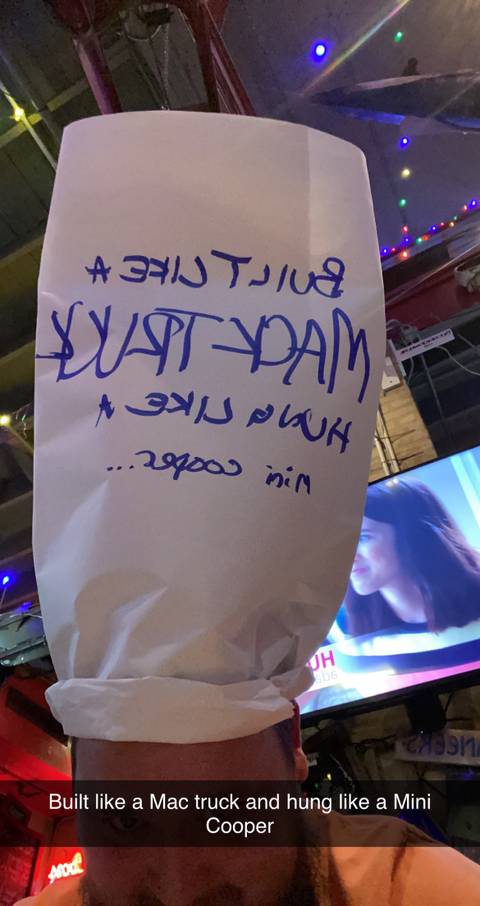 BUILT LIKE A
MACK TRUCK
HUNG LIKE A
Mini cooper...
Built like a Mac truck and hung like a Mini
Cooper
HU